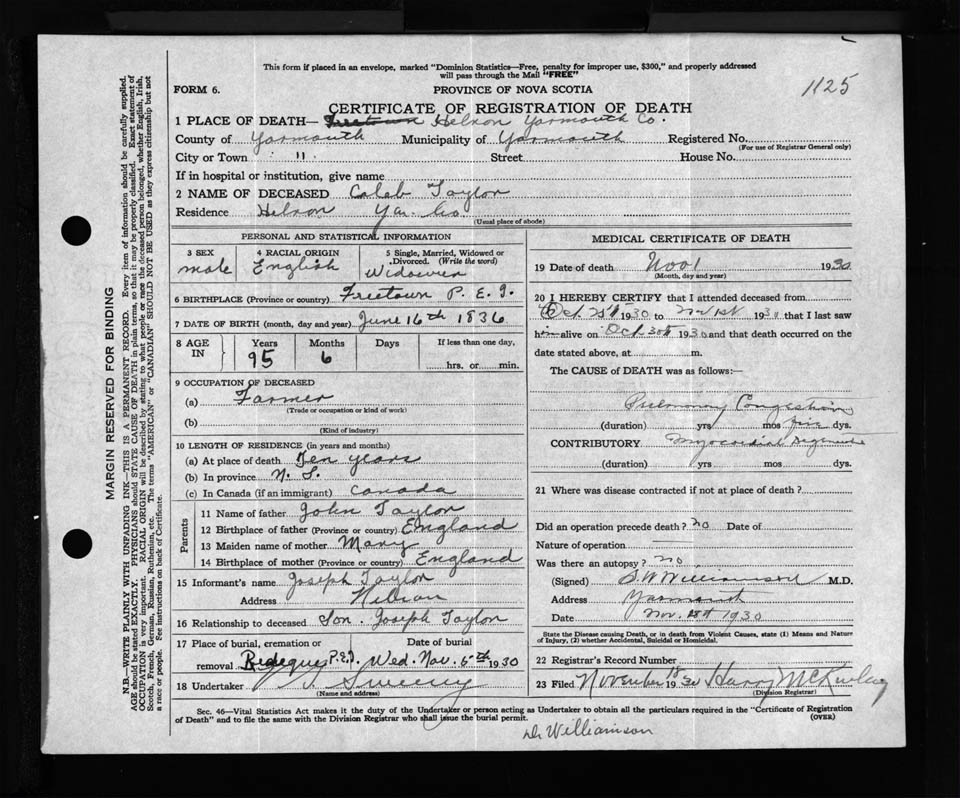 This form if placed in an envelope, marked "Dominion Statistics—Free, penalty for improper use, $300," and properly addressed
will pass through the Mail "FREE"
FORM 6.
PROVINCE OF NOVA SCOTIA
1125
CERTIFICATE OF REGISTRATION OF DEATH
1 PLACE OF DEATH— Freetown Helron Yarmouth Co.
County of Yarmouth Municipality of Yarmouth Registered No.
(For use of Registrar General only)
City or Town " Street House No.
If in hospital or institution, give name
2 NAME OF DECEASED Caleb Taylor
Residence Helron Ya. Co.
(Usual place of abode)
PERSONAL AND STATISTICAL INFORMATION
3 SEX 4 RACIAL ORIGIN 5 Single, Married, Widowed or
Divorced. (Write the word)
male English Widower
6 BIRTHPLACE (Province or country) Freetown P.E.I.
7 DATE OF BIRTH (month, day and year) June 16th 1836
8 AGE IN Years Months Days If less than one day,
95 6 hrs. or min.
9 OCCUPATION OF DECEASED
(a) Farmer
(Trade or occupation or kind of work)
(b)
(Kind of industry)
10 LENGTH OF RESIDENCE (in years and months)
(a) At place of death Ten years
(b) In province N.S.
(c) In Canada (if an immigrant) Canada
Parents
11 Name of father John Taylor
12 Birthplace of father (Province or country) England
13 Maiden name of mother Mary
14 Birthplace of mother (Province or country) England
15 Informant's name Joseph Taylor
Address
16 Relationship to deceased Son. Joseph Taylor
17 Place of burial, cremation or Date of burial
removal P.E.I. Wed. Nov. 5th 1930
18 Undertaker Sweeny
(Name and address)
MEDICAL CERTIFICATE OF DEATH
19 Date of death Nov 1 1930
(Month, day and year)
20 I HEREBY CERTIFY that I attended deceased from
Oct. 1930 to Nov 1st 1930 that I last saw
him alive on Oct 30th 1930 and that death occurred on the
date stated above, at m.
The CAUSE of DEATH was as follows:
Pulmonary Congestion
(duration) yrs mos five dys.
CONTRIBUTORY Myocardial
(duration) yrs mos dys.
21 Where was disease contracted if not at place of death?
Did an operation precede death? no Date of
Nature of operation
Was there an autopsy? no
(Signed) Williamson M.D.
Address Yarmouth
Date Nov. 1930
State the Disease causing Death, or in death from Violent Causes, state (1) Means and Nature
of Injury, (2) whether Accidental, Suicidal or Homicidal.
22 Registrar's Record Number
23 Filed November 1930 Harry
(Division Registrar)
Sec. 46—Vital Statistics Act makes it the duty of the Undertaker or person acting as Undertaker to obtain all the particulars required in the "Certificate of Registration
of Death" and to file the same with the Division Registrar who shall issue the burial permit.
(OVER)
Dr Williamson
MARGIN RESERVED FOR BINDING
N.B.—WRITE PLAINLY WITH UNFADING INK—THIS IS A PERMANENT RECORD. Every item of information should be carefully supplied.
AGE should be stated EXACTLY. PHYSICIANS should STATE CAUSE OF DEATH in plain terms, so that it may be properly classified. Exact statement of
OCCUPATION is very important. RACIAL ORIGIN will be described by stating to what people or race the deceased person belonged, whether English, Irish,
Scotch, French, German, Russian, Ruthenian, etc. The terms "AMERICAN" or "CANADIAN" SHOULD NOT BE USED as they express citizenship but not
a race or people. See instructions on back of Certificate.